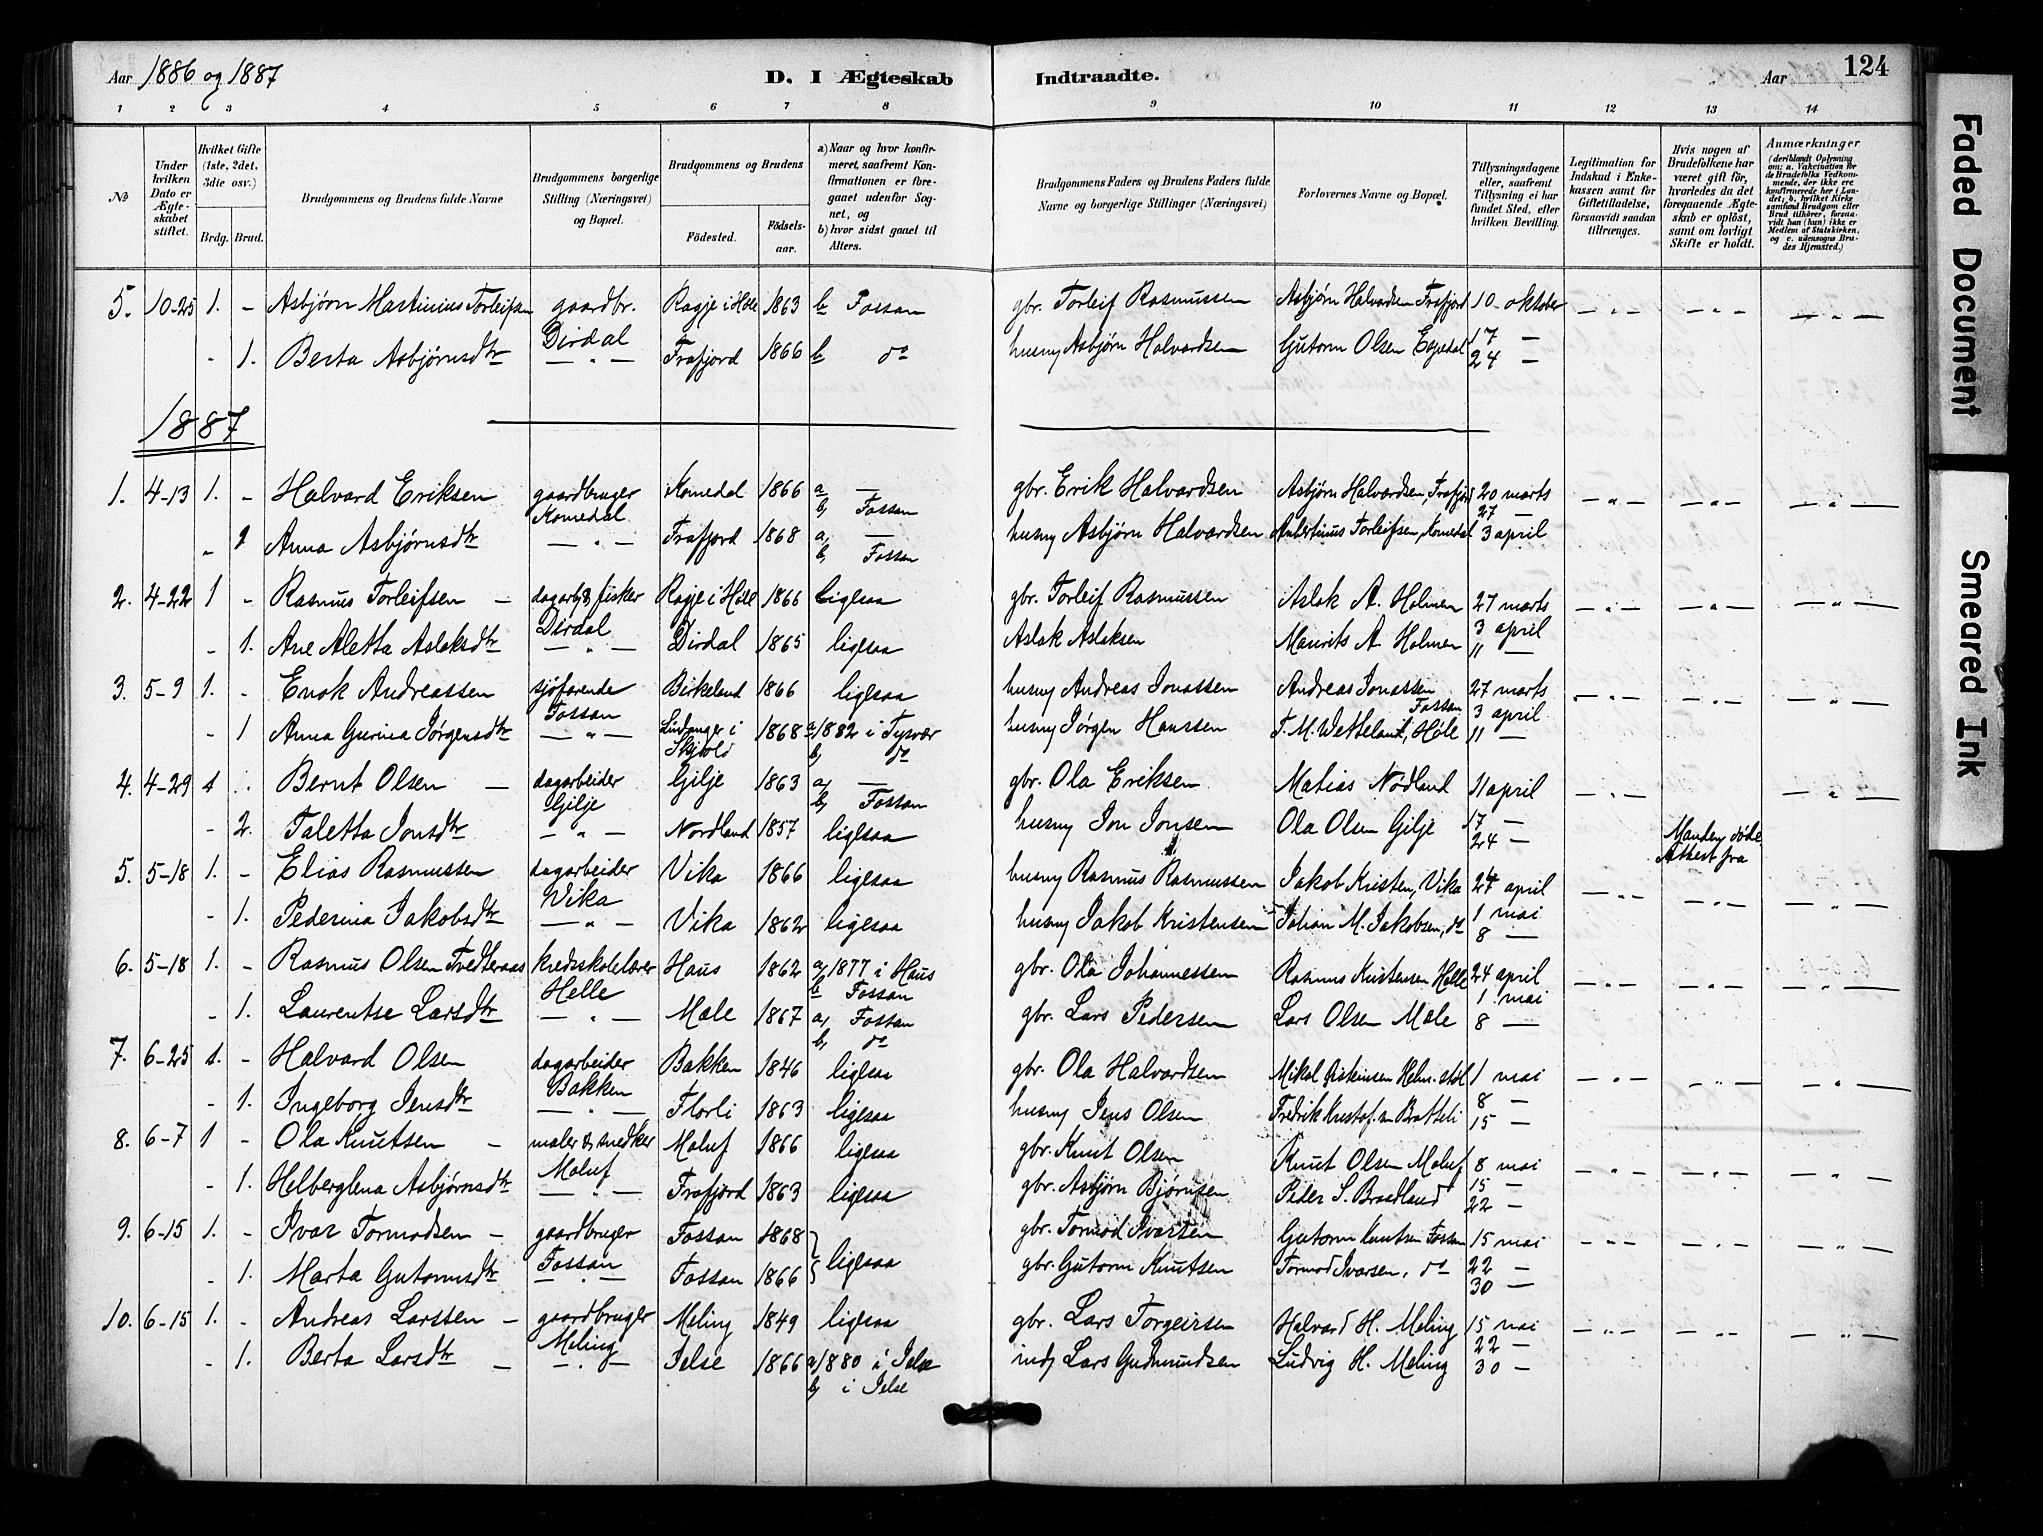 Aar 1886 og 1887 D. I Ægteskab Indtraadte. Aar 124
1 2 3 4 5 6 7 8 9 10 11 12 13 14
№
Under hvilken Dato er Ægteskabet stiftet.
Hvilket Gifte (1ste, 2det, 3die osv.)
Brdg. Brud.
Brudgommens og Brudens fulde Navne
Brudgommens borgerlige Stilling (Næringsvei) og Bopæl.
Brudgommens og Brudens
Fødested. Fødselsaar.
a) Naar og hvor konfirmeret, saafremt Konfirmationen er foregaaet udenfor Sognet, og
b) hvor sidst gaaet til Alters.
Brudgommens Faders og Brudens Faders fulde Navne og borgerlige Stillinger (Næringsvei)
Forlovernes Navne og Bopæl.
Tillysningsdagene eller, saafremt Tillysning ei har fundet Sted, efter hvilken Bevilling.
Legitimation for Indskud i Enkekassen samt for Giftetilladelse, forsaavidt saadan tiltrænges.
Hvis nogen af Brudefolkene har været gift før, hvorledes da det foregaaende Ægteskab er opløst, samt om lovligt Skifte er holdt.
Anmærkninger
(deriblandt Oplysning om: a. Vakcination for de Brudefolks Vedkommende, der ikke ere konfirmerede her i Landet; b. hvilket Kirkesamfund Brudgom eller Brud tilhører, forsaavidt han (hun) ikke er Medlem af Statskirken, og c. udensogns Brudes Hjemsted.)
5. 10-25 1. - Asbjørn Martinius Torleifsen gaardbr. Ragje i Høle 1863 b Fossan gbr. Torleif Rasmussen Asbjørn Halvardsen Frafjord 10 - oktober — " — — " — — " —
Dirdal
- 1. Berta Asbjørnsdtr — " — Frafjord 1866 b do husmg Asbjørn Halvardsen Gutorm Olsen Espedal 17 —
24 —
1887
1. 4-13 1. - Halvard Eriksen gaardbruger Komedal 1866 a — gbr. Erik Halvardsen Asbjørn Halvardsen, Frafjord 20 marts — " — — " — — " —
Komedal b, Fossan 27 —
" 1 Anna Asbjørnsdtr — " — Frafjord 1868 a, — husmg Asbjørn Halvardsen Torleifsen, Komedal 3 april
b, Fossan
2. 4-22 1 - Rasmus Torleifsen — dagarb. & fisker Ragje i Høle 1866 ligesaa gbr. Torleif Rasmussen Aslak A. Holmen 27 marts — " — — " — — " —
Dirdal 3 april
- 1. Ane Aletta Aslaksdtr — " — Dirdal 1865 ligesaa Aslak Aslaksen Maurits A. Holmen 11 —
3. 5-9 1. - Enok Andreassen sjøfarende Birkeland 1866 ligesaa husmg Andreas Jonassen Andreas Jonassen 27 marts — " — — " — — " —
Fossan Fossan 3 april
- 1 Anna Gurina Jørgensdtr — " — i Skjold 1868 a, 1882 i Tysvær husmg Jørgen Hanssen T. M. Wetteland, Høle 11 —
b, do
4. 4-29 1 - Bernt Olsen — dagarbeider Gilje 1863 a, — gbr. Ola Eriksen Matias Nødland 11 april — " — — " —
Gilje b, Fossan
- 2. Taletta Jonsdtr — " — Nordland 1857 ligesaa husmg Jon Jonsen Ola Olsen Gilje 17 — Manden døde
24 — Attest fra
5. 5-18 1. - Elias Rasmussen dagarbeider Vika 1866 ligesaa husmg Rasmus Rasmussen Jakob Kristen, Vika 24 april — " — — " — — " —
Vika
- 1. Pederina Jakobsdtr — " — Vika 1862 ligesaa husmg Jakob Kristensen Johan M. Jakobsen, do 1 mai
8 —
6. 5-18 1. - Rasmus Olsen Tvedteraas kredsskolelærer Haus 1862 a, 1877 i Haus gbr. Ola Johannessen Rasmus Kristensen Helle 24 april — " — — " — — " —
Helle b Fossan 1 mai
- 1. Laurentse Larsdtr — " — Mæle 1867 a, Fossan gbr. Lars Pedersen Lars Olsen Mæle 8 —
b, do
7. 6-25 1. - Halvard Olsen dagarbeider Bakken 1846 ligesaa gbr. Ola Halvardsen Mikal 1 mai — " — — " — — " —
Bakken 8 —
- 1. Ingeborg Jensdtr — " — Florli 1863 ligesaa husmg Jens Olsen Fredrik Bratteli 15 —
8. 6-7 1 - Ola Knutsen — maler & snedker Maluf 1866 ligesaa gbr. Knut Olsen Knut Olsen Maluf 8 mai — " — — " — — " —
Maluf 15 —
- 1. Helberglena Asbjørnsdtr — " — Frafjord 1863 ligesaa gbr. Asbjørn Bjørnsen Peder S. Bradland 22 —
9. 6-15 1. - Ivar Tormodsen — gaardbruger Fossan 1868 ligesaa gbr. Tormod Ivarsen Gutorm Knutsen Fossan 15 mai — " — — " — — " —
Fossan
- 1. Marta Gutormsdtr — " — Fossan 1866 gbr. Gutorm Knutsen Tormod Ivarsen, do 22 —
30 —
10. 6-15 1. - Andreas Larssen — gaardbruger Meling 1849 ligesaa gbr. Lars Torgeirsen Halvard H. Meling 15 mai — " — — " — — " —
Meling 22 —
- 1. Berta Larsdtr — — " — Jelse 1866 a, 1880 i Jelse indg Lars Gudmundsen Ludvig H. Meling 30 —
b, i Jelse
Faded Document
Smeared Ink